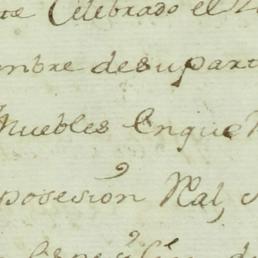 te Celebrado el
mbre desupart
Muebles Enque
posesion Real,